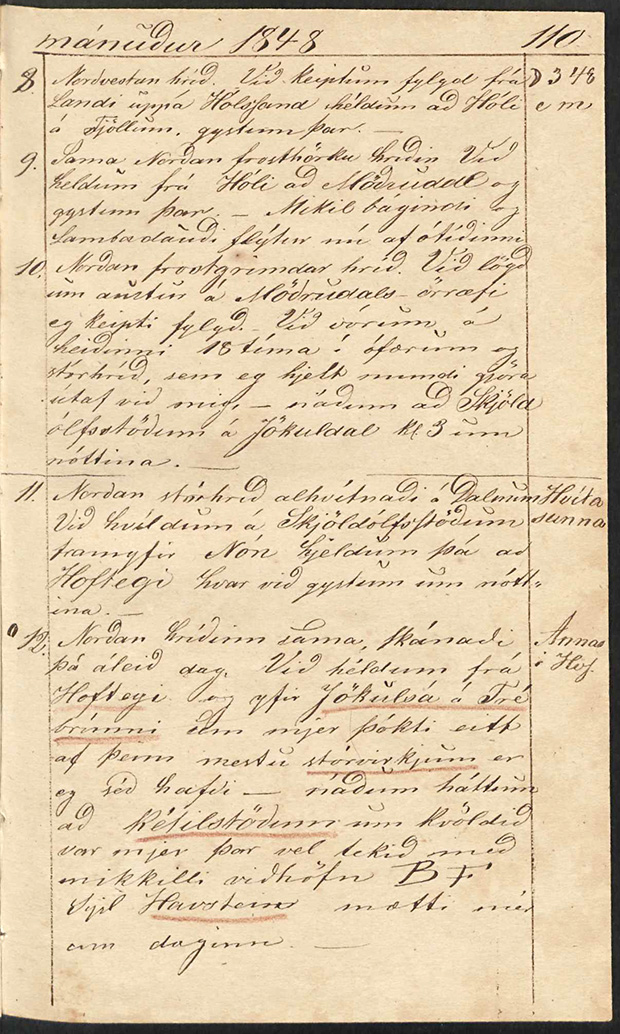 mánuður 1848 110
8. Nordvestan hríd. Vid keiptum fylgd frá D 3 48
Landi uppa Hólssand héldum ad Hóli e m
á Fjöllum, gystum þar. —
9. Sama Nordan frosthörku hridin Vid
heldum frá Hóli ad Mödrudal og
gystum þar. — Mikil bágindi og
Lambadaudi flýtur nú af ótídinni
10. Nordan frostgrimdar hríd. Vid lögd
um austur á Mödrudals-örræfi
eg keipti fylgd. — Vid vórum á
heidinni 18 tíma í ófærum og
stórhríd, sem eg hjelt mundi gjöra
útaf vid mig, — nádum ad Skjöld
ólfsstödum á Jökuldal kl. 3 um
nóttina. —
11. Nordan stórhríd alhvítnadi á Dalnum Hvíta
Vid hvíldum a Skjöldólfsstödum sunna
framyfir Nón hjeldum þá ad
Hofteigi hvar vid gystum um nótt-
ina. —
12. Nordan hrídinn sama, skánadi Annar
þá áleid dag. Vid héldum frá í Hvs.
Hofteigi og yfir Jökulsá á Tré
brúnni sem mjer þókti eitt
af þeim mestu stórvirkjum er
eg séd hafdi — nádum háttum
ad Ketilstödum um kvöldid
var mjer þar vel tekid med
mikkilli vidhöfn B F
Sysl Havstein mætti mér
um daginn. —